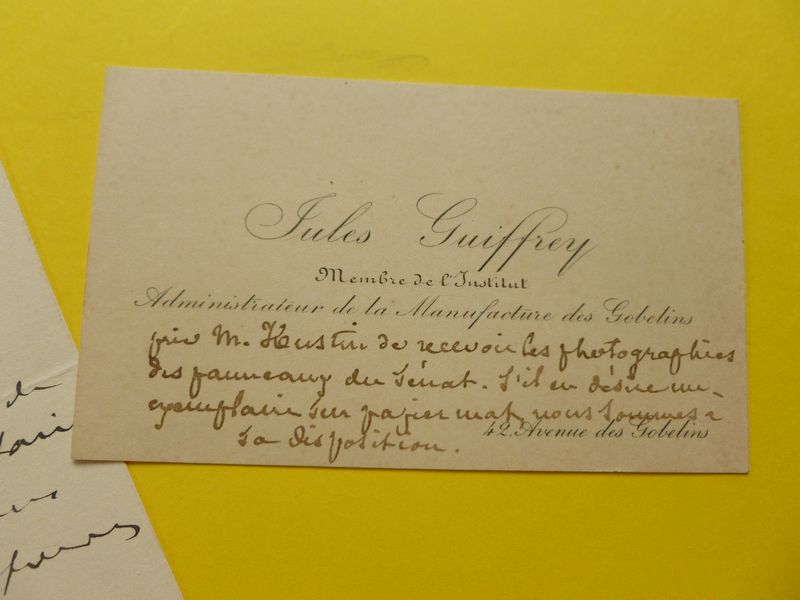 Jules Guiffrey
Membre de l'Institut
Administrateur de la Manufacture des Gobelins
prie M. Hustin de recevoir les photographies
des panneaux du Sénat. S'il en désire un
exemplaire sur papier mat, nous sommes à
sa disposition.
42. Avenue des Gobelins
de